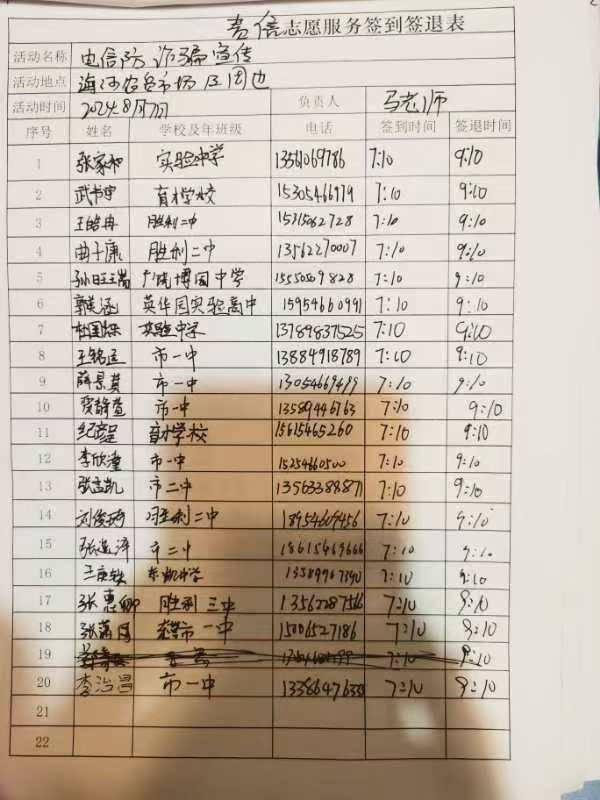 志愿服务签到签退表
活动名称 电信防诈骗宣传
活动地点 海河农贸市场及周边
活动时间 2024.8月7日 负责人 马老师
序号 姓名 学校及年班级 电话 签到时间 签退时间
1 张家和 实验中学 13561069786 7:10 9:10
2 育才学校 15305466979 7:10 9:10
3 王皓冉 胜利二中 15315062728 7:10 9:10
4 曲子康 胜利二中 13562270007 7:10 9:10
5 中学 15550509828 7:10 9:10
6 郭美涵 英华园实验高中 15954660991 7:10 9:10
7 实验中学 13789837525 7:10 9:10
8 市一中 13884918789 7:10 9:10
9 薛景莫 市一中 13054669499 7:10 9:10
10 市一中 13589446763 7:10 9:10
11 育才学校 15615465260 7:10 9:10
12 李欣潼 市一中 15254660500 7:10 9:10
13 张孟凯 市二中 13563388871 7:10 9:10
14 胜利二中 18954609456 7:10 9:10
15 市二中 18615469666 7:10 9:10
16 东凯中学 7:10 9:10
17 张惠卿 胜利三中 13562287566 7:10 9:10
18 市一中 15006527186 7:10 9:10
19 7:10 9:10
20 李治昌 市一中 7:10 9:10
21
22